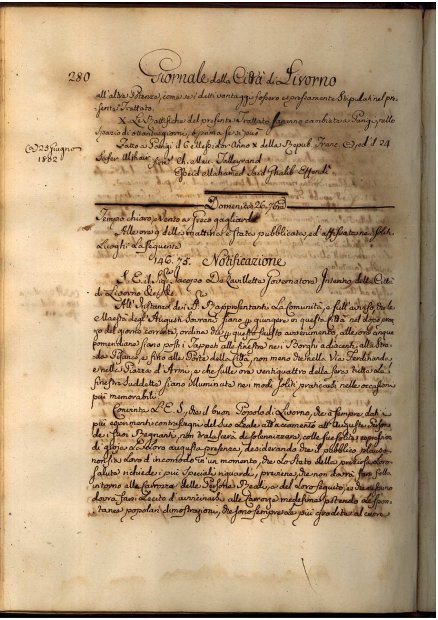 280 Giornale della Città di Livorno
all'altra Potenza, come se i detti vantaggi fossero espressamente stipulati nel pre-
sente Trattato.
X. Le Ratifiche del presente Trattato saranno cambiate a Parigi, nello
spazio di ottanta giorni, o prima se si può
Fatto a Parigi il 6 Messidor Anno X della Repub. Franc. o sia il 24
(a) 25 Giugno
1802
Ch. Mau. Talleyrand
Esseid Mahamed Said Ghalib Effendi
Domenica 26
Tempo chiaro, vento a Greco gagliardo
Alle ore 9 della mattina è stata pubblicata, ed affissata ne' soliti
Luoghi la seguente
Notificazione
S. E. il Sig. Jacopo De Lavillette Governatore Interino della Città
di Livorno
All'Instanza dei Rappresentanti la Comunità, e sull'avviso che le
Maestà degli Augusti Sovrani siano per giungere in questa Città nel dopo pran-
zo del giorno corrente, ordina che per questo fausto avvenimento, alle ore cinque
pomeridiane siano posti i Tappeti alle finestre nei Borghi adiacenti, alla Stra-
da Pisana, e fino alle Porte della Città, non meno che nella Via Ferdinanda
e nella Piazza di Armi, e che sulle ore ventiquattro della sera tutte le
finestre suddette siano illuminate nei modi soliti praticarsi nelle occasioni
più memorabili
Convinta L'E. S. che il buon Popolo di Livorno, che à sempre dati i
più esprimenti contrassegni del suo Leale attaccamento all'Auguste Persone
de i suoi Regnanti, non trascurerà di solennizzare colle sue solite espressioni
di gioia la loro augusta presenza, desiderando che il pubblico plauso
non sia loro d'incomodo in un momento, che lo stato della preziosa loro
salute richiede i più speciali riguardi, previene, che non dovrà farsi folla
intorno alle Carrozze delle Persone Reali, e del Loro seguito, e che nessuno
dovrà farsi lecito d'avvicinarsi alle Carrozze medesime potendo le spon-
tanee popolari dimostrazioni, che sono sempre le più gradite al cuore